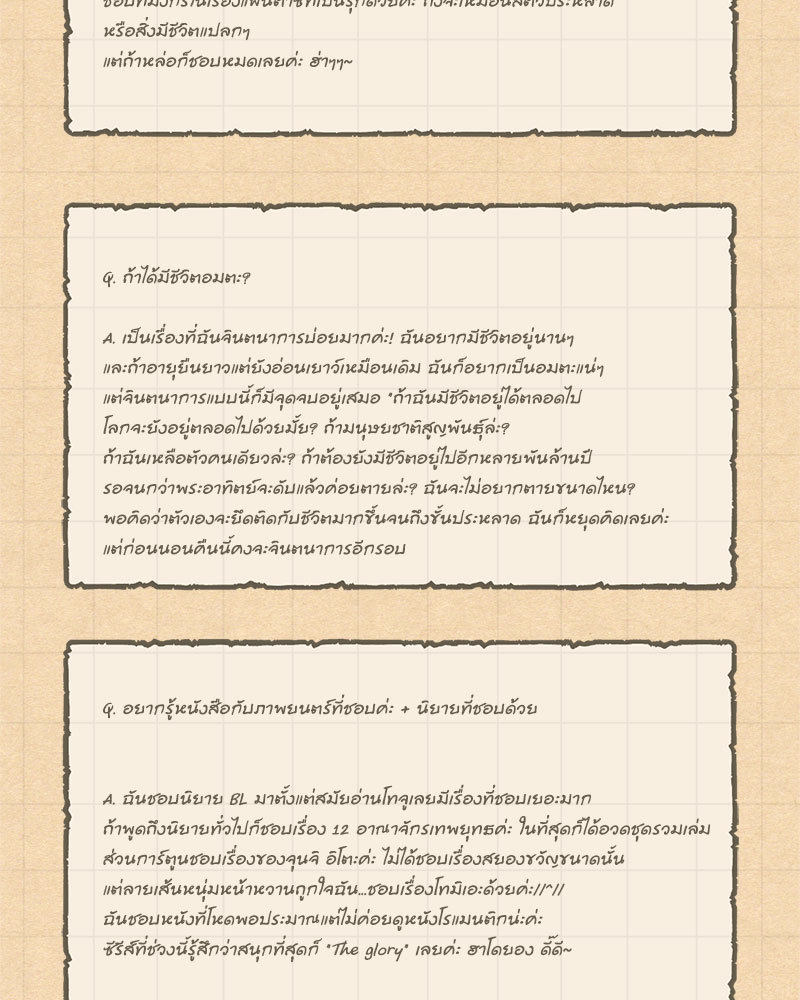 ชอบที่มังกรในเรื่องแฟนตาซีที่เป็นรุกด้วยค่ะ ถึงจะเหมือนสัตว์ประหลาด
หรือสิ่งมีชีวิตแปลกๆ
แต่ถ้าหล่อก็ชอบหมดเลยค่ะ ฮ่าๆๆ~
Q. ถ้าได้มีชีวิตอมตะ?
A. เป็นเรื่องที่ฉันจินตนาการบ่อยมากค่ะ! ฉันอยากมีชีวิตอยู่นานๆ
และถ้าอายุยืนยาวแต่ยังอ่อนเยาว์เหมือนเดิม ฉันก็อยากเป็นอมตะแน่ๆ
แต่จินตนาการแบบนี้ก็มีจุดจบอยู่เสมอ "ถ้าฉันมีชีวิตอยู่ได้ตลอดไป
โลกจะยังอยู่ตลอดไปด้วยมั้ย? ถ้ามนุษยชาติสูญพันธุ์ล่ะ?
ถ้าฉันเหลือตัวคนเดียวล่ะ? ถ้าต้องยังมีชีวิตอยู่ไปอีกหลายพันล้านปี
รอจนกว่าพระอาทิตย์จะดับแล้วค่อยตายล่ะ? ฉันจะไม่อยากตายขนาดไหน?
พอคิดว่าตัวเองจะยึดติดกับชีวิตมากขึ้นจนถึงขั้นประหลาด ฉันก็หยุดคิดเลยค่ะ
แต่ก่อนนอนคืนนี้คงจะจินตนาการอีกรอบ
Q. อยากรู้หนังสือกับภาพยนตร์ที่ชอบค่ะ + นิยายที่ชอบด้วย
A. ฉันชอบนิยาย BL มาตั้งแต่สมัยอ่านโทจูเลยมีเรื่องที่ชอบเยอะมาก
ถ้าพูดถึงนิยายทั่วไปก็ชอบเรื่อง 12 อาณาจักรเทพยุทธค่ะ ในที่สุดก็ได้อวดชุดรวมเล่ม
ส่วนการ์ตูนชอบเรื่องของจุนจิ อิโต๊ะค่ะ ไม่ได้ชอบเรื่องสยองขวัญขนาดนั้น
แต่ลายเส้นหนุ่มหน้าหวานถูกใจฉัน...ชอบเรื่องโทมิเอะด้วยค่ะ//^//
ฉันชอบหนังที่โหดพอประมาณแต่ไม่ค่อยดูหนังโรแมนติกน่ะค่ะ
ซีรีส์ที่ช่วงนี้รู้สึกว่าสนุกที่สุดก็ "The glory" เลยค่ะ ฮาโดยอง ดี๊ดี~